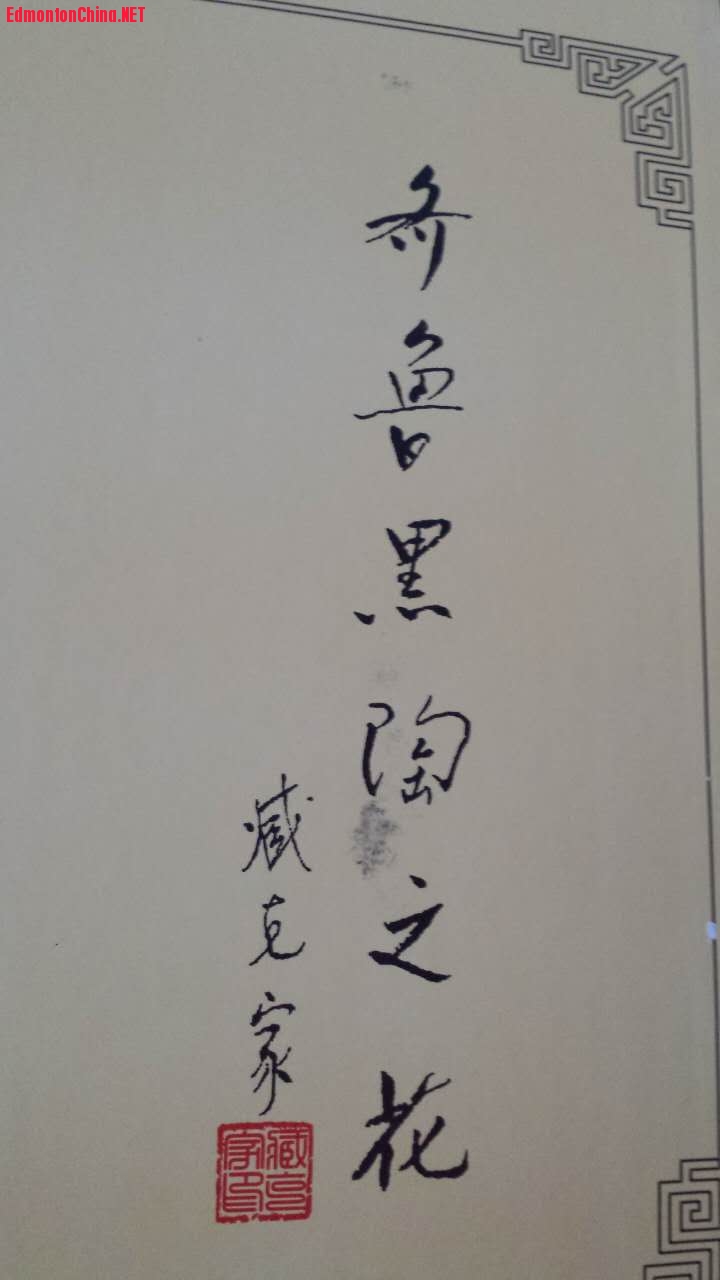 EdmontonChina.NET
齐鲁黑陶之花
臧克家